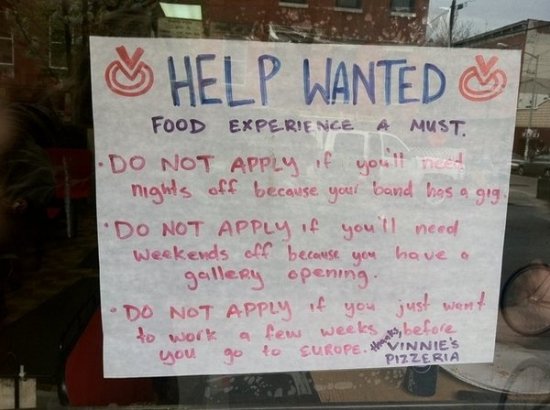 HELP WANTED
FOOD EXPERIENCE A MUST.
• DO NOT APPLY if you'll need
nights off because your band has a gig.
• DO NOT APPLY if you'll need
weekends off because you have a
gallery opening.
• DO NOT APPLY if you just want
to work a few weeks before
you go to EUROPE.
thanks,
VINNIE'S
PIZZERIA